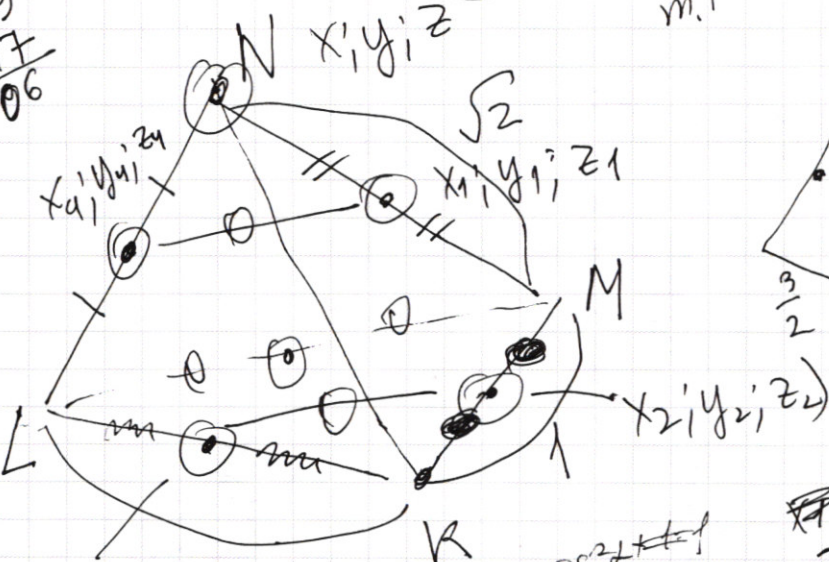 7
06
N x; y; z
√2
x4; y4; z4
x1; y1; z1
M
3
2
x2; y2; z2)
L
1
K